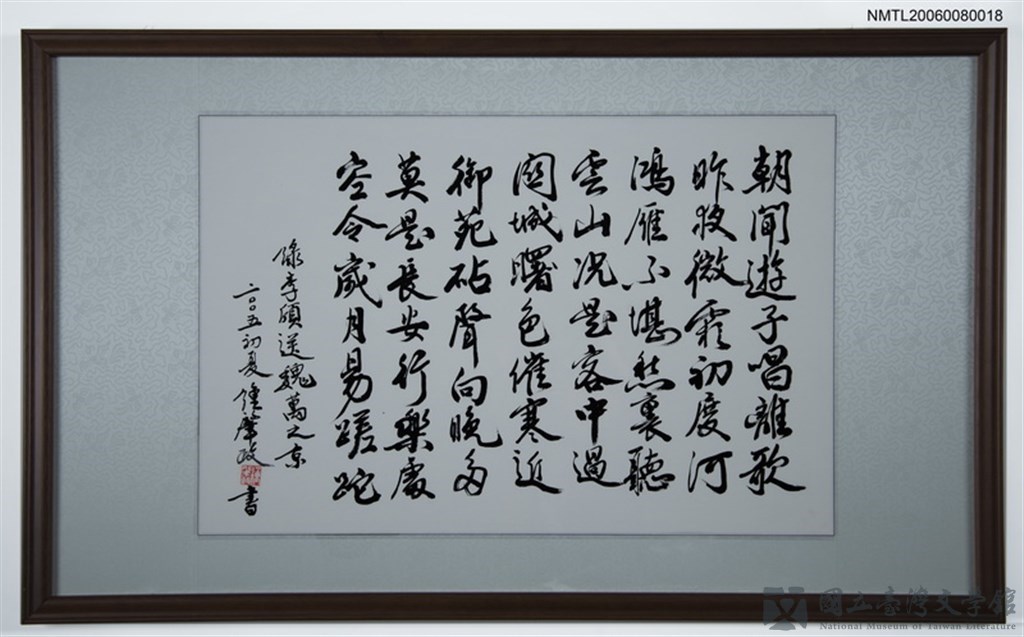 NMTL20060080018
朝聞遊子唱離歌
昨夜微霜初度河
鴻雁不堪愁裏聽
雲山況是客中過
關城曙色催寒近
御苑砧聲向晚多
莫是長安行樂處
空令歲月易蹉跎
錄李頎送魏萬之京
二〇〇五初夏 鍾肇政 書
國立臺灣文學館
National Museum of Taiwan Literature